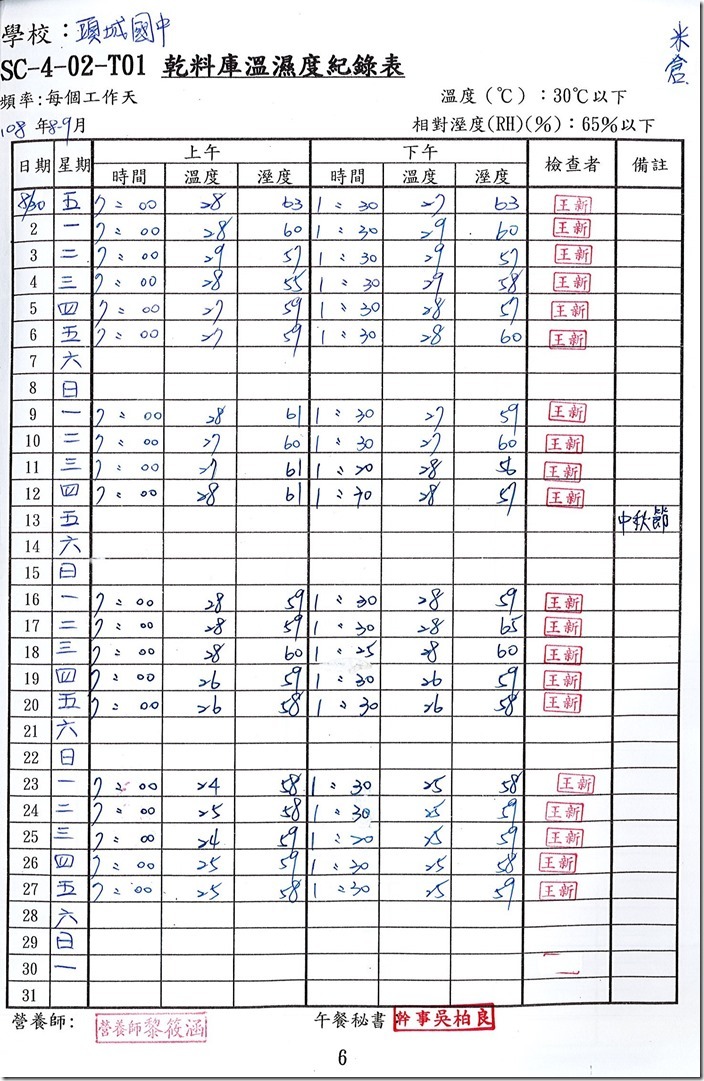 學校：頭城國中
米倉
SC-4-02-T01 乾料庫溫濕度紀錄表
頻率:每個工作天 溫度（℃）：30℃以下
108 年8-9月 相對溼度(RH)(%)：65%以下
日期 星期 上午 下午 檢查者 備註
時間 溫度 溼度 時間 溫度 溼度
8/30 五 7:00 28 63 1:30 27 63 王新
2 一 7:00 28 60 1:30 29 60 王新
3 二 7:00 29 57 1:30 29 57 王新
4 三 7:00 28 55 1:30 29 58 王新
5 四 7:00 27 59 1:30 28 57 王新
6 五 7:00 27 59 1:30 28 60 王新
7 六
8 日
9 一 7:00 28 61 1:30 27 59 王新
10 二 7:00 27 60 1:30 27 60 王新
11 三 7:00 27 61 1:20 28 56 王新
12 四 7:00 28 61 28 57 王新
13 五 中秋節
14 六
15 日
16 一 7:00 28 59 1:30 28 59 王新
17 二 7:00 28 59 1:30 28 65 王新
18 三 7:00 28 60 1:25 28 60 王新
19 四 7:00 26 59 1:30 26 59 王新
20 五 7:00 26 58 1:30 26 58 王新
21 六
22 日
23 一 7:00 24 58 1:30 25 58 王新
24 二 7:00 25 58 1:30 25 59 王新
25 三 7:00 24 59 1:20 25 59 王新
26 四 7:00 25 59 1:30 25 58 王新
27 五 7:00 25 58 1:30 25 59 王新
28 六
29 日
30 一
31
營養師: 營養師黎筱涵 午餐秘書 幹事吳柏良
6